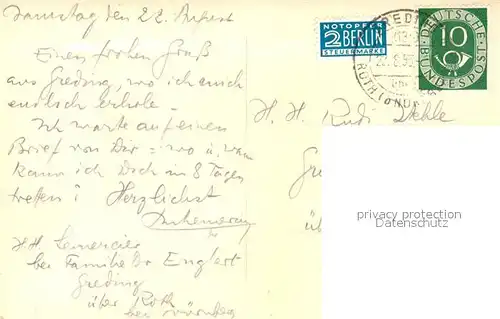 Samstag den 22. August
Einen frohen Gruß
aus Greding, wo ich mich
endlich erhole.
Ich warte auf einen
Brief von Dir = wo u. wann
kann ich Dich in 8 Tagen
treffen? Herzlichst
H. H. Lemercier
bei Familie Dr Englert
Greding
über Roth
bei Nürnberg
NOTOPFER
2 BERLIN
STEUERMARKE
ROTH
DEUTSCHE BUNDESPOST
10
H. H. Rudi Stehle
privacy protection
Datenschutz